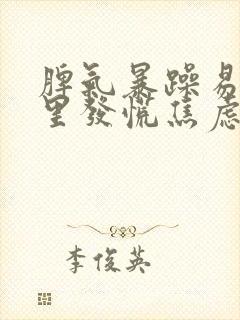 脾氣暴躁易
里發慌焦慮
李俊英